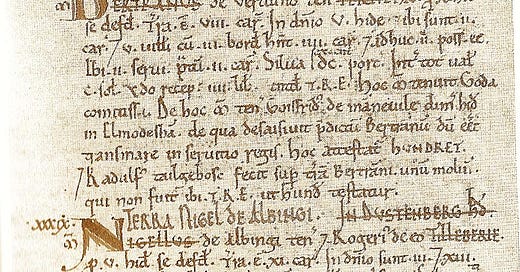 BERTRANNUS de Verduno ten
se defd. Tra. ē. viii. car. In dnio v. hide. 7 ibi sunt .ii.
car. 7 v. uilli cū .vi. bord hnt .iii. car. 7 adhuc .ii. poss. eē.
Ibi .ii. serui. ptū .ii. car. Silua dc. porc. Int tot ual
c. sol. Xdo recep: .iiii. lib. T.R.E. Hoc m tenuit Goda
comitissa. De hoc m ten Goisfrid de maneuile dim hid
in Elmodesha. de qua desaisiuit pdictū Bertrannū dū eēt
transmare in seruitio regis. hoc attestat HUNDRET.
7 Radulf tailgebosc fecit sup trā Bertranni unū molin
qui non fuit ibi T.R.E. ut hund testatur.
xxxix. TERRA NIGEL DE ALBINGI. IN DUSTENBERG HD.
m NIGELLUS de Albingi ten 7 Rogeri de eo TILLEBERIE.
p. v. hid se defd. Tra. ē. xi. car. In dnio sunt .iii. 7 xii.